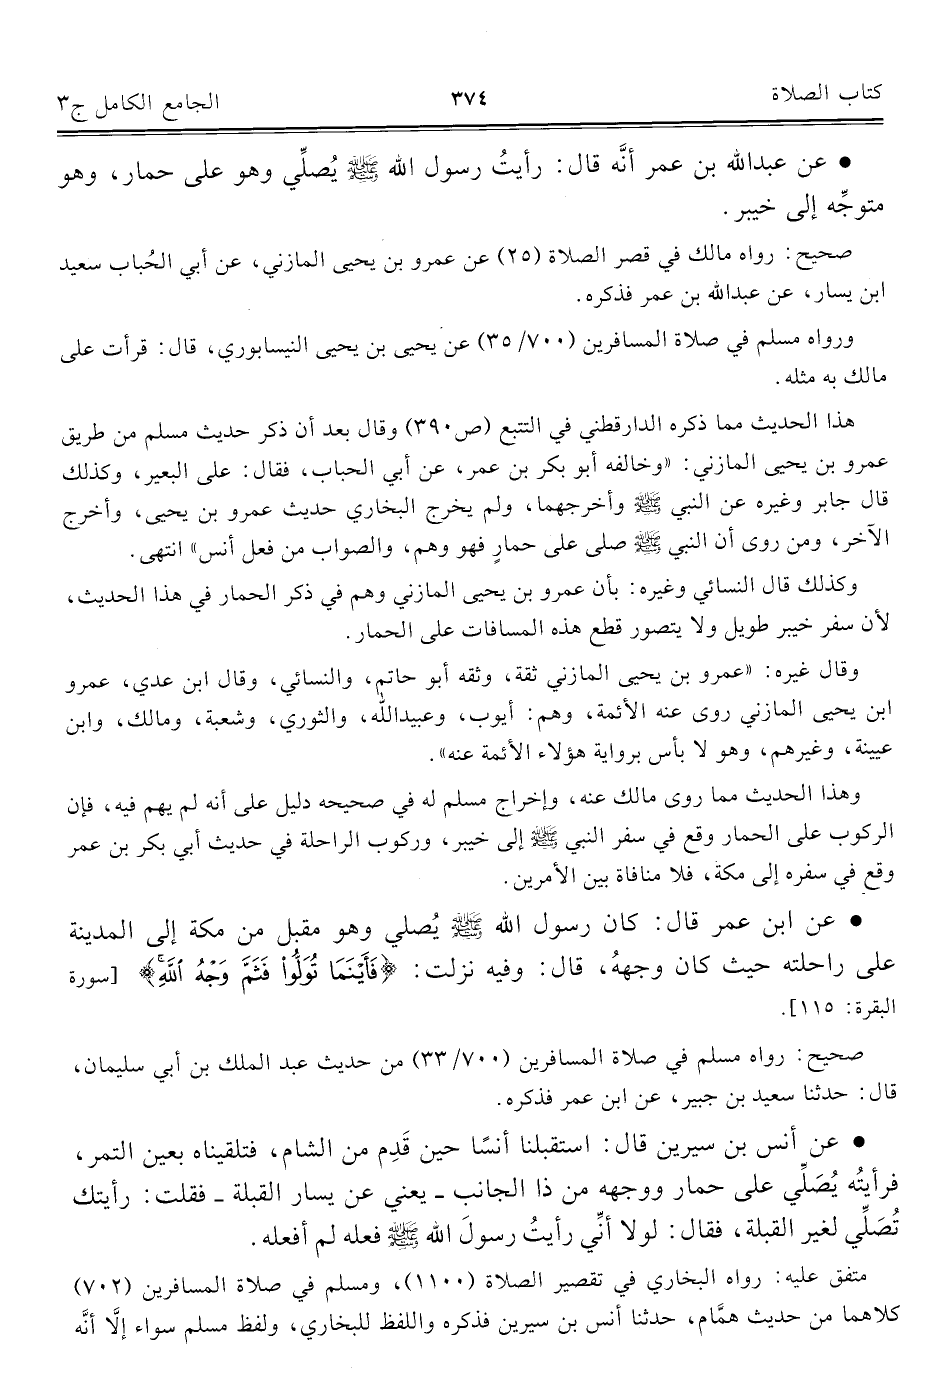 كتاب الصلاة ٣٧٤ الجامع الكامل ج٣
● عن عبدالله بن عمر أنَّه قال: رأيتُ رسول الله ﷺ يُصلِّي وهو على حمار، وهو
متوجِّه إلى خيبر.
صحيح: رواه مالك في قصر الصلاة (٢٥) عن عمرو بن يحيى المازني، عن أبي الحُباب سعيد
ابن يسار، عن عبدالله بن عمر فذكره.
ورواه مسلم في صلاة المسافرين (٧٠٠/ ٣٥) عن يحيى بن يحيى النيسابوري، قال: قرأت على
مالك به مثله.
هذا الحديث مما ذكره الدارقطني في التتبع (ص٣٩٠) وقال بعد أن ذكر حديث مسلم من طريق
عمرو بن يحيى المازني: «وخالفه أبو بكر بن عمر، عن أبي الحباب، فقال: على البعير، وكذلك
قال جابر وغيره عن النبي ﷺ وأخرجهما، ولم يخرج البخاري حديث عمرو بن يحيى، وأخرج
الآخر، ومن روى أن النبي ﷺ صلى على حمارٍ فهو وهم، والصواب من فعل أنس» انتهى.
وكذلك قال النسائي وغيره: بأن عمرو بن يحيى المازني وهم في ذكر الحمار في هذا الحديث،
لأن سفر خيبر طويل ولا يتصور قطع هذه المسافات على الحمار.
وقال غيره: «عمرو بن يحيى المازني ثقة، وثقه أبو حاتم، والنسائي، وقال ابن عدي، عمرو
ابن يحيى المازني روى عنه الأئمة، وهم: أيوب، وعبيدالله، والثوري، وشعبة، ومالك، وابن
عيينة، وغيرهم، وهو لا بأس برواية هؤلاء الأئمة عنه».
وهذا الحديث مما روى مالك عنه، وإخراج مسلم له في صحيحه دليل على أنه لم يهم فيه، فإن
الركوب على الحمار وقع في سفر النبي ﷺ إلى خيبر، وركوب الراحلة في حديث أبي بكر بن عمر
وقع في سفره إلى مكة، فلا منافاة بين الأمرين.
● عن ابن عمر قال: كان رسول الله ﷺ يُصلي وهو مقبل من مكة إلى المدينة
على راحلته حيث كان وجههُ، قال: وفيه نزلت: ﴿فَأَيْنَمَا تُوَلُّواْ فَثَمَّ وَجْهُ ٱللَّهِ﴾ [سورة
البقرة: ١١٥].
صحيح: رواه مسلم في صلاة المسافرين (٧٠٠/ ٣٣) من حديث عبد الملك بن أبي سليمان،
قال: حدثنا سعيد بن جبير، عن ابن عمر فذكره.
● عن أنس بن سيرين قال: استقبلنا أنسًا حين قَدِم من الشام، فتلقيناه بعين التمر،
فرأيتُه يُصَلِّي على حمار ووجهه من ذا الجانب ـ يعني عن يسار القبلة ـ فقلت: رأيتك
تُصَلِّي لغير القبلة، فقال: لولا أنِّي رأيتُ رسولَ الله ﷺ فعله لم أفعله.
متفق عليه: رواه البخاري في تقصير الصلاة (١١٠٠)، ومسلم في صلاة المسافرين (٧٠٢)
كلاهما من حديث همَّام، حدثنا أنس بن سيرين فذكره واللفظ للبخاري، ولفظ مسلم سواء إلَّا أنَّه